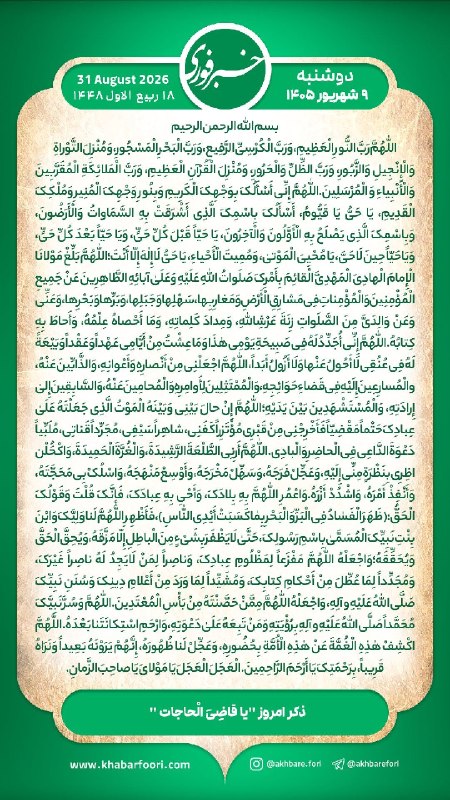 خبرفوری
دوشنبه
۹ شهریور ۱۴۰۵
31 August 2026
۱۸ ربیع الاول ۱۴۴۸
بسم الله الرحمن الرحیم
اللَّهُمَّ رَبَّ النُّورِ الْعَظِیمِ، وَرَبَّ الْکُرْسِیِّ الرَّفِیعِ، وَرَبَّ الْبَحْرِ الْمَسْجُورِ، وَمُنْزِلَ التَّوْراةِ
وَالْإِنْجِیلِ وَالزَّبُورِ، وَرَبَّ الظِّلِّ وَالْحَرُورِ، وَمُنْزِلَ الْقُرْآنِ الْعَظِیمِ، وَرَبَّ الْمَلائِکَةِ الْمُقَرَّبِینَ
وَالْأَنْبِیاءِ وَالْمُرْسَلِینَ. اللَّهُمَّ إِنِّی أَسْأَلُکَ بِوَجْهِکَ الْکَرِیمِ وَبِنُورِ وَجْهِکَ الْمُنِیرِ وَمُلْکِکَ
الْقَدِیمِ، یَا حَیُّ یَا قَیُّومُ، أَسْأَلُکَ بِاسْمِکَ الَّذِی أَشْرَقَتْ بِهِ السَّمَاواتُ وَالْأَرَضُونَ،
وَبِاسْمِکَ الَّذِی یَصْلَحُ بِهِ الْأَوَّلُونَ وَالْآخِرُونَ، یَا حَیّاً قَبْلَ کُلِّ حَیٍّ، وَیَا حَیّاً بَعْدَ کُلِّ حَیٍّ،
وَیَا حَیّاً حِینَ لَا حَیَّ، یَا مُحْیِیَ الْمَوْتیٰ، وَمُمِیتَ الْأَحْیاءِ، یَا حَیُّ لَا إِلهَ إِلّا أَنْتَ؛ اللَّهُمَّ بَلِّغْ مَوْلانَا
الْإِمامَ الْهادِیَ الْمَهْدِیَّ الْقائِمَ بِأَمْرِکَ صَلَواتُ اللهِ عَلَیْهِ وَعَلَی آبائِهِ الطَّاهِرِینَ عَنْ جَمِیعِ
الْمُؤْمِنِینَ وَالْمُؤْمِناتِ فِی مَشارِقِ الْأَرْضِ وَمَغارِبِها، سَهْلِها وَجَبَلِها، وَبَرِّها وَبَحْرِها، وَعَنِّی
وَعَنْ وَالِدَیَّ مِنَ الصَّلَواتِ زِنَةَ عَرْشِ اللهِ، وَمِدادَ کَلِماتِهِ، وَمَا أَحْصاهُ عِلْمُهُ، وَأَحاطَ بِهِ
کِتابُهُ. اللَّهُمَّ إِنِّی أُجَدِّدُ لَهُ فِی صَبِیحَةِ یَوْمِی هٰذَا وَمَا عِشْتُ مِنْ أَیَّامِی عَهْداً وَعَقْداً وَبَیْعَةً
لَهُ فِی عُنُقِی لَا أَحُولُ عَنْها وَلَا أَزُولُ أَبَداً، اللَّهُمَّ اجْعَلْنِی مِنْ أَنْصارِهِ وَأَعْوانِهِ، وَالذَّابِّینَ عَنْهُ،
وَالْمُسارِعِینَ إِلَیْهِ فِی قَضاءِ حَوَائِجِهِ، وَالْمُمْتَثِلِینَ لِأَوامِرِهِ وَالْمُحامِینَ عَنْهُ، وَالسَّابِقِینَ إِلیٰ
إِرادَتِهِ، وَالْمُسْتَشْهَدِینَ بَیْنَ یَدَیْهِ؛ اللَّهُمَّ إِنْ حالَ بَیْنِی وَبَیْنَهُ الْمَوْتُ الَّذِی جَعَلْتَهُ عَلَیٰ
عِبادِکَ حَتْماً مَقْضِیّاً فَأَخْرِجْنِی مِنْ قَبْرِی مُؤْتَزِراً کَفَنِی، شاهِراً سَیْفِی، مُجَرِّداً قَناتِی، مُلَبِّیاً
دَعْوَةَ الدَّاعِی فِی الْحاضِرِ وَالْبادِی. اللَّهُمَّ أَرِنِی الطَّلْعَةَ الرَّشِیدَةَ، وَالْغُرَّةَ الْحَمِیدَةَ، وَاکْحُلْ نا
ظِرِی بِنَظْرَةٍ مِنِّی إِلَیْهِ، وَعَجِّلْ فَرَجَهُ، وَسَهِّلْ مَخْرَجَهُ، وَأَوْسِعْ مَنْهَجَهُ، وَاسْلُکْ بِی مَحَجَّتَهُ،
وَأَنْفِذْ أَمْرَهُ، وَاشْدُدْ أَزْرَهُ. وَاعْمُرِ اللَّهُمَّ بِهِ بِلادَکَ، وَأَحْیِ بِهِ عِبادَکَ، فَإِنَّکَ قُلْتَ وَقَوْلُکَ
الْحَقُّ: (ظَهَرَ الْفَسادُ فِی الْبَرِّ وَالْبَحْرِ بِما کَسَبَتْ أَیْدِی النَّاسِ)، فَأَظْهِرِ اللَّهُمَّ لَنا وَلِیَّکَ وَابْنَ
بِنْتِ نَبِیِّکَ الْمُسَمَّیٰ بِاسْمِ رَسُولِکَ، حَتَّیٰ لَا یَظْفَرَ بِشَیْءٍ مِنَ الْباطِلِ إِلّا مَزَّقَهُ، وَیُحِقَّ الْحَقَّ
وَیُحَقِّقَهُ؛ وَاجْعَلْهُ اللَّهُمَّ مَفْزَعاً لِمَظْلُومِ عِبادِکَ، وَناصِراً لِمَنْ لَا یَجِدُ لَهُ ناصِراً غَیْرَکَ،
وَمُجَدِّداً لِمَا عُطِّلَ مِنْ أَحْکامِ کِتابِکَ، وَمُشَیِّداً لِمَا وَرَدَ مِنْ أَعْلامِ دِینِکَ وَسُنَنِ نَبِیِّکَ
صَلَّی اللهُ عَلَیْهِ وَآلِهِ، وَاجْعَلْهُ اللَّهُمَّ مِمَّنْ حَصَّنْتَهُ مِنْ بَأْسِ الْمُعْتَدِینَ. اللَّهُمَّ وَسُرَّ نَبِیَّکَ
مُحَمَّداً صَلَّی اللهُ عَلَیْهِ وَآلِهِ بِرُؤْیَتِهِ وَمَنْ تَبِعَهُ عَلَیٰ دَعْوَتِهِ، وَارْحَمِ اسْتِکانَتَنا بَعْدَهُ. اللَّهُمَّ
اکْشِفْ هٰذِهِ الْغُمَّةَ عَنْ هٰذِهِ الْأُمَّةِ بِحُضُورِهِ، وَعَجِّلْ لَنا ظُهُورَهُ، إِنَّهُمْ یَرَوْنَهُ بَعِیداً وَنَرَاهُ
قَرِیباً، بِرَحْمَتِکَ یَا أَرْحَمَ الرَّاحِمِینَ. الْعَجَلَ الْعَجَلَ یَا مَوْلایَ یَا صاحِبَ الزَّمانِ.
ذکر امروز "یا قاضِیَ الْحاجات "
www.khabarfoori.com
@akhbare.fori
@akhbarefori